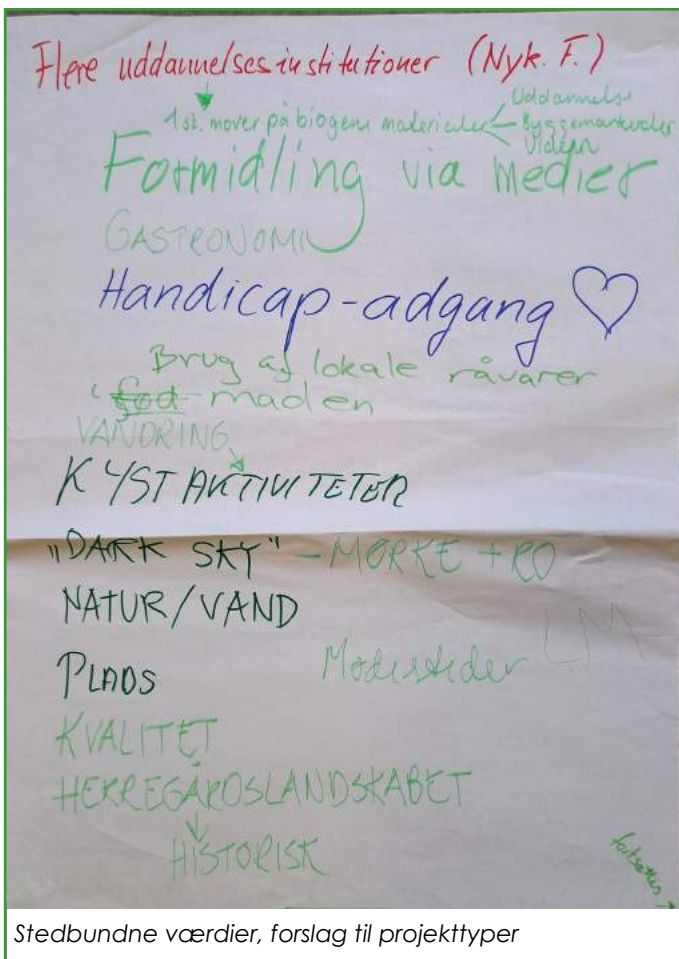 Flere uddannelsesinstitutioner (Nyk. F.)
1st. mover på biogene materialer
Uddannelse
Byggematerialer
Viden
Formidling via medier
GASTRONOMI
Handicap-adgang
Brug af lokale råvarer
i fød maden
VANDRING
KYSTAKTIVITETER
"DARK SKY" - MØRKE + RO
NATUR/VAND
LM
Mødesteder
PLADS
KVALITET
HERREGÅRDSLANDSKABET
HISTORISK
fortsættes
Stedbundne værdier, forslag til projekttyper